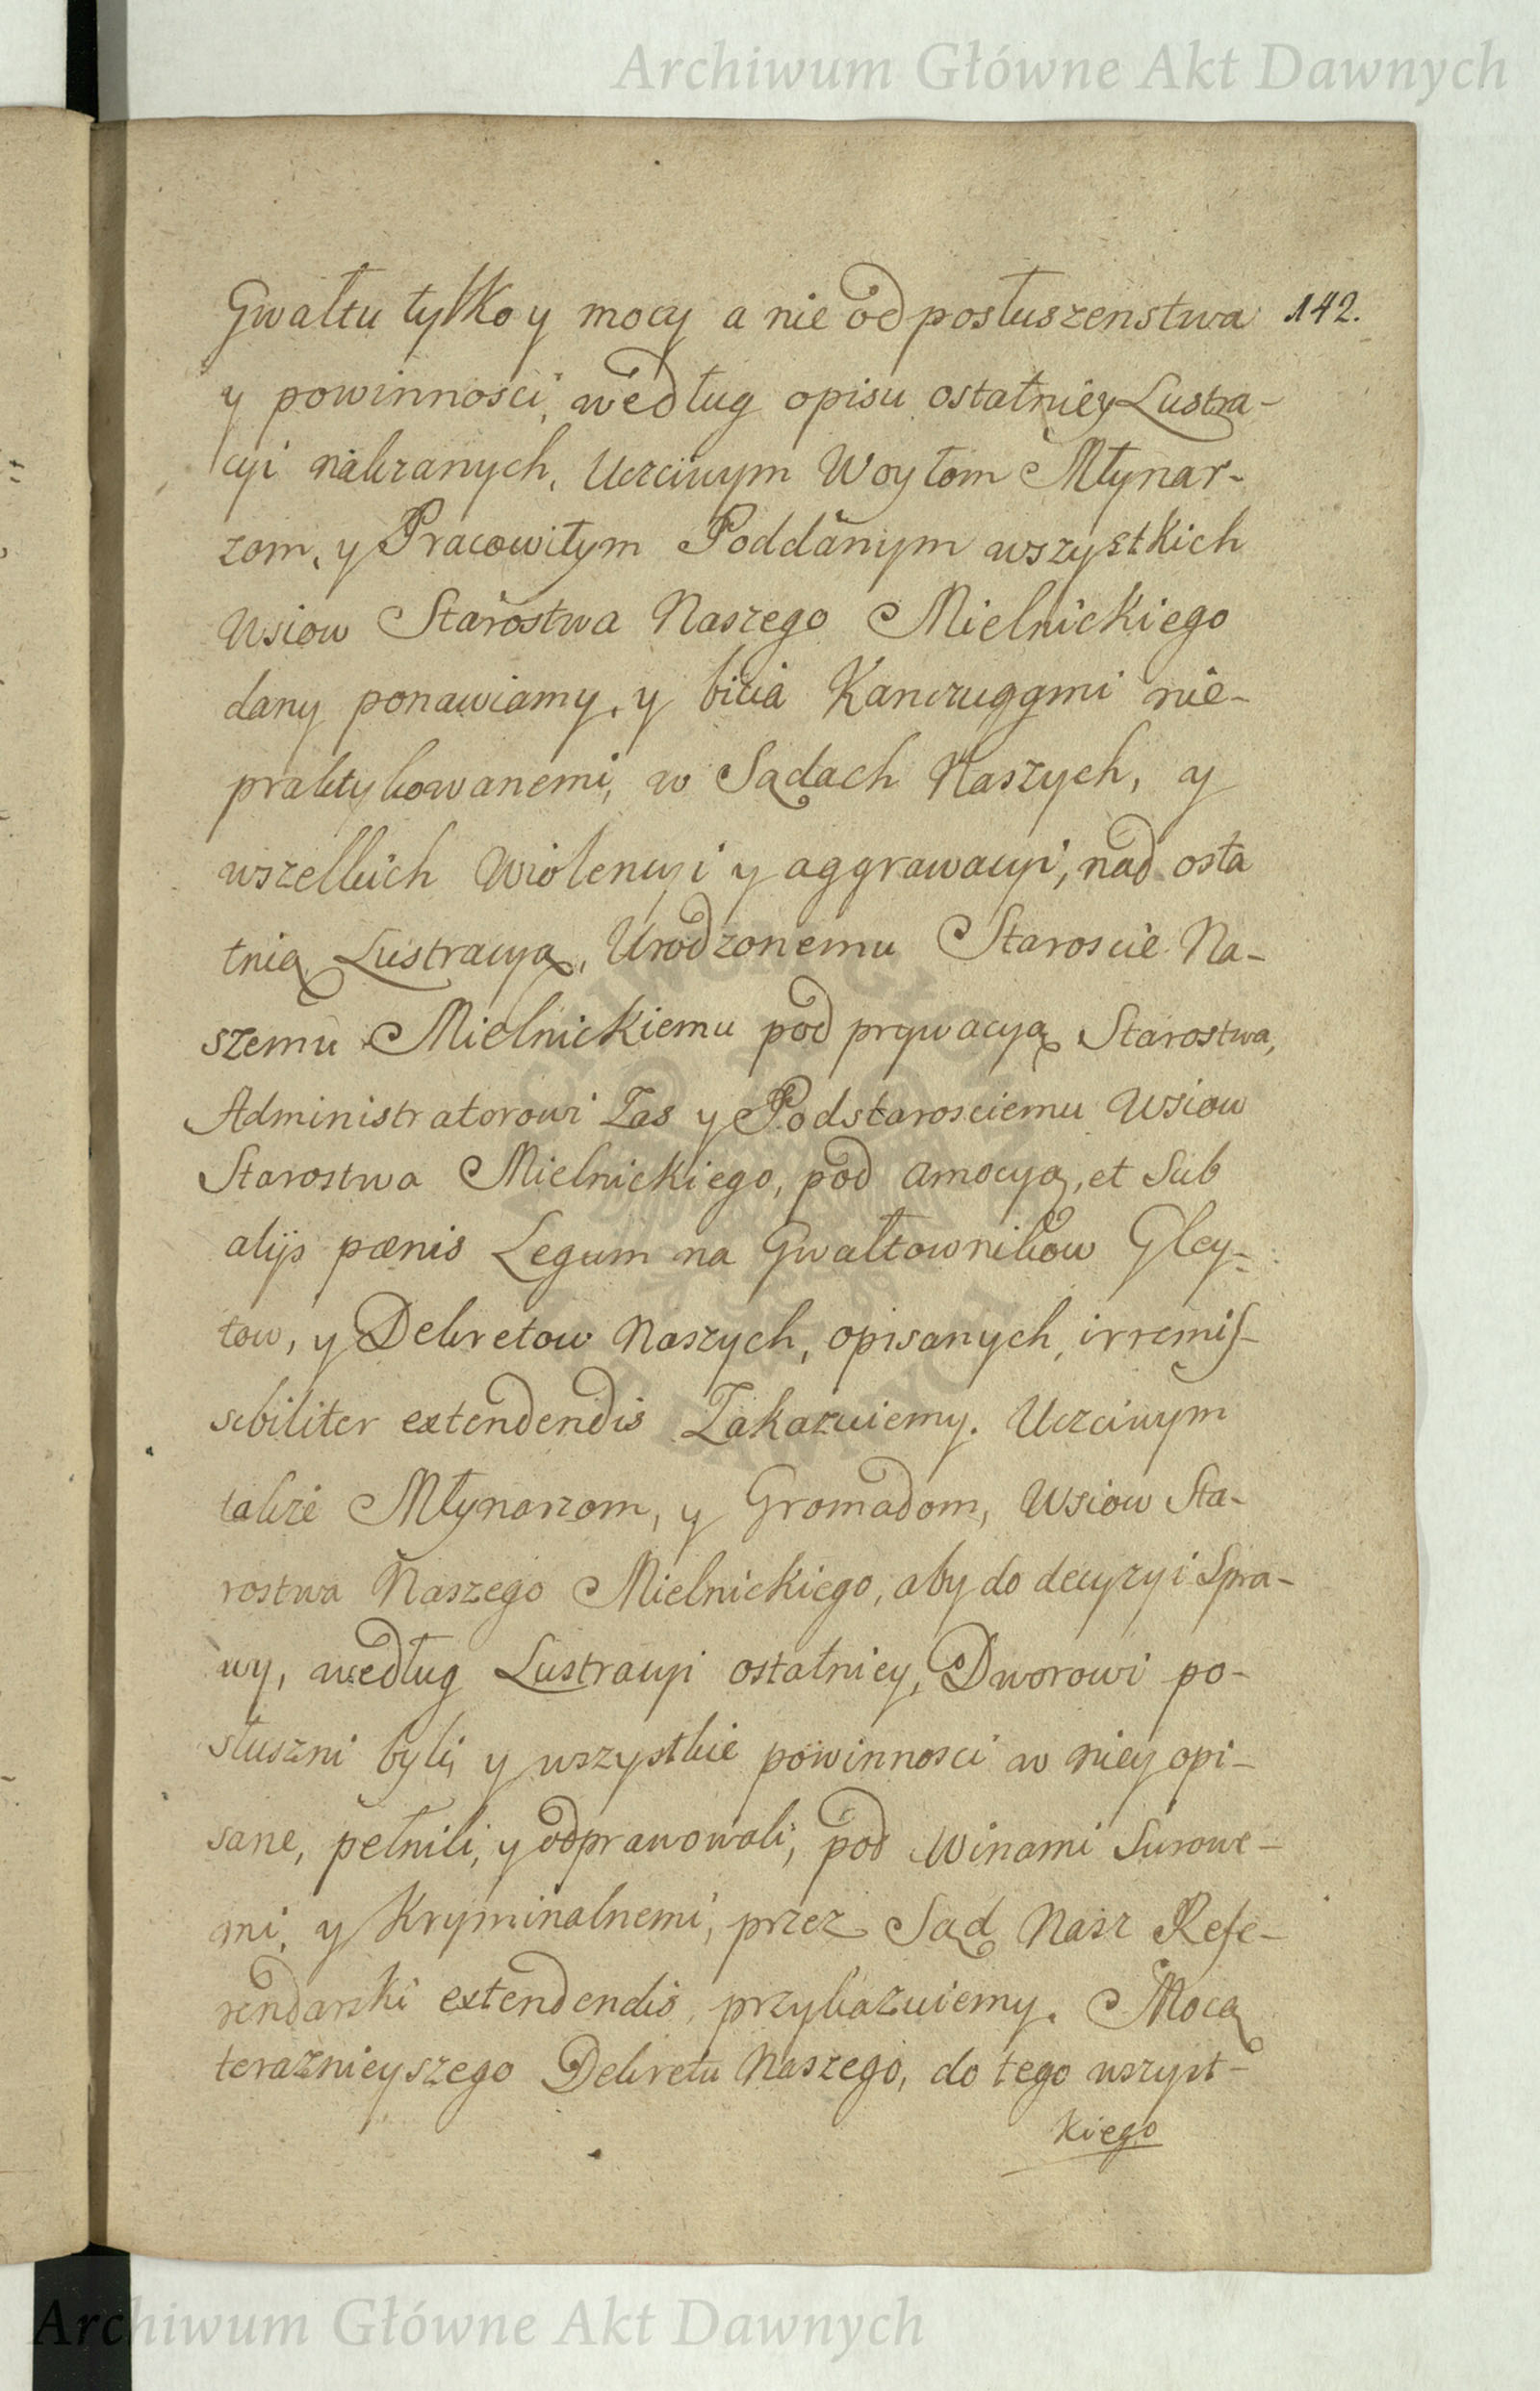 Archiwum Główne Akt Dawnych
Gwałtu tylko y mocy a nie od posłuszenstwa 142.
y powinnosci, według opisu ostatniey Lustra-
cyi nakazanych, Uczciwym Woytom Młynar-
zom, y Pracowitym Poddanym wszystkich
Wsiow Starostwa Naszego Mielnickiego
dany ponawiamy, y bicia Kanczugami nie-
praktykowanemi, w Sądach Naszych, y
wszelkich Wiolencyi y aggrawacyi, nad osta
tnią Lustracyą, Urodzonemu Staroscie Na-
szemu Mielnickiemu pod prywacyą Starostwa,
Administratorowi Zas y Podstarosciemu Wsiow
Starostwa Mielnickiego, pod amocyą, et sub
alijs pœnis Legum na Gwałtownikow Gley-
tow, y Dekretow Naszych, opisanych, irremis-
sibiliter extendendis Zakazuiemy. Uczciwym
także Młynarzom, y Gromadom, Wsiow Sta-
rostwa Naszego Mielnickiego, aby do decyzyi Spra-
wy, według Lustracyi ostatniey, Dworowi po-
słuszni byli, y wszystkie powinnosci w niey opi-
sane, pełnili, y odprawowali, pod Winami Surowe-
mi, y Kryminalnemi, przez Sąd Nasz Refe-
rendarski extendendis, przykazuiemy. Mocą
teraznieyszego Dekretu Naszego, do tego wszyst-
kiego
Archiwum Główne Akt Dawnych